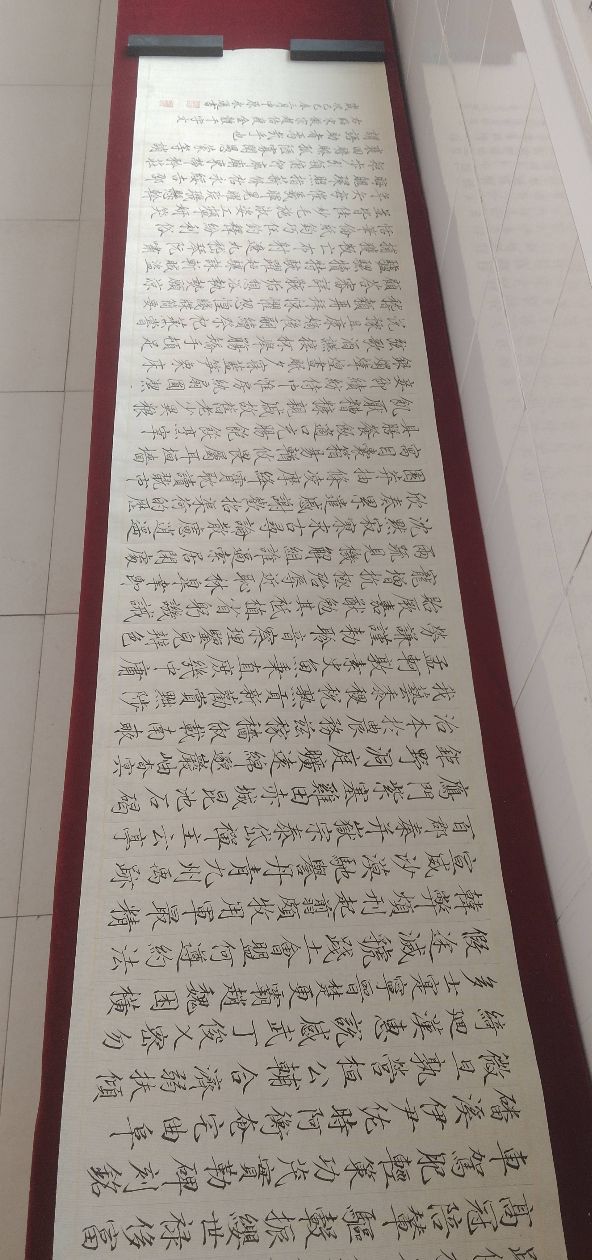 高冠陪輦驅轂振纓世禄侈富
車駕肥輕策功茂實勒碑刻銘
磻溪伊尹佐時阿衡奄宅曲阜
微旦孰營桓公輔合濟弱扶傾
綺迴漢惠說感武丁俊乂密勿
多士寔寧晉楚更霸趙魏困橫
假途滅虢踐土會盟何遵約法
韓弊煩刑起翦頗牧用軍最精
宣威沙漠馳譽丹青九州禹跡
百郡秦并嶽宗泰岱禪主云亭
鴈門紫塞雞田赤城昆池石碣
鉅野洞庭曠遠綿邈巖岫杳冥
治本於農務茲稼穡俶載南畝
我藝黍稷稅熟貢新勸賞黜陟
孟軻敦素史魚秉直庶幾中庸
勞謙謹勑聆音察理鑒皃辨色
貽厥嘉猷勉其祗植省躬譏誡
寵增抗極殆辱近恥林皋幸即
兩疏見機解組誰逼索居閒處
沈默寂寥求古尋論散慮逍遙
欣奏累遣慼謝歡招渠荷的歷
園莽抽條凌摩絳霄耽讀翫市
寓目囊箱易輶攸畏屬耳垣牆
具膳餐飯適口充腸飽飫烹宰
飢厭糟糠親戚故舊老少異糧
妾御績紡侍巾帷房紈扇圓潔
銀燭煒煌晝眠夕寐藍筍象床
絃歌酒讌接杯舉觴矯手頓足
悅豫且康嫡後嗣續祭祀烝嘗
稽顙再拜悚懼恐惶牋牒簡要
顧答審詳骸垢想浴執熱願涼
驢騾犢特駭躍超驤誅斬賊盜
捕獲叛亡布射遼丸嵇琴阮嘯
恬筆倫紙鈞巧任釣釋紛利俗
並皆佳妙毛施淑姿工顰妍笑
年矢每催曦暉朗曜璇璣懸斡
晦魄環照指薪修祜永綏吉劭
矩步引領俯仰廊廟束帶矜莊
徘徊瞻眺孤陋寡聞愚蒙等誚
謂語助者焉哉乎也
右臨宋徽宗趙佶瘦金體千字文